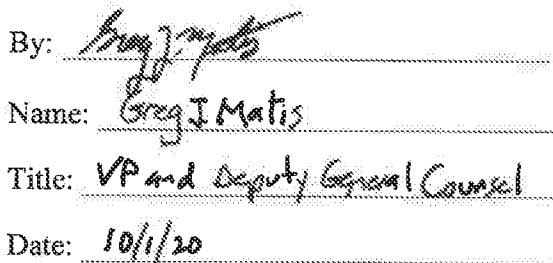 By: Greg J Matis
Name: Greg J Matis
Title: VP and Deputy General Counsel
Date: 10/1/20